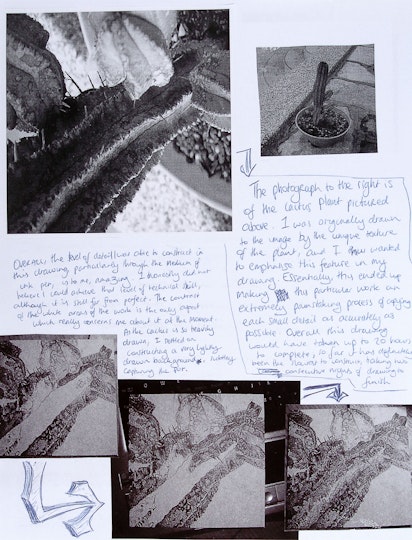 The photograph to the right is
of the cactus plant pictured
above. I was originally drawn
to the image by the unique texture
of the plant, and I wanted
to emphasise this feature in my
drawing. Essentially, this ended up
making this particular work an
extremely painstaking process of copying
each small detail as accurately as
possible. Overall this drawing
would have taken up to 20 hours
to complete; so far it has definitely
been the to
consecutive nights of drawing to
finish
Overall, the level of detail I was able to construct in
this drawing, particularly through the medium of
ink pen, is to me, amazing. I honestly did not
believe I could achieve that level of technical skill,
although it is still far from perfect. The contrast
of the white areas of the work is the only aspect
which really concerns me about it at the moment.
As the cactus is so heavily
drawn, I settled on
constructing a very lightly
drawn background,
capturing the pot.